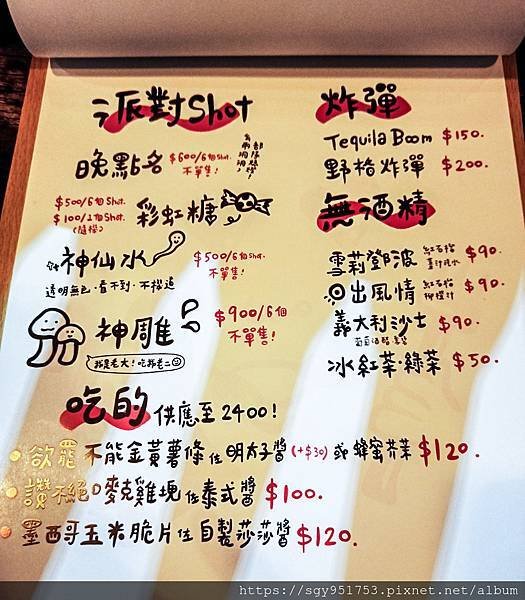 派對Shot
晚點名 $600/6個Shot.
不單售!
$500/6個Shot.
$100/1個Shot.
(隨機)
彩虹糖
神仙水 $500/6個Shot.
不單售!
透明無色·看不到·不撥追
神雕 $900/6個
不單售!
我是老大!吃我老二
炸彈
Tequila Boom $150.
野格炸彈 $200.
無酒精
雪莉鄧波 $90.
紅石榴
日出風情 $90.
紅石榴
柳橙汁
義大利沙士 $90.
冰紅茶·綠茶 $50.
吃的 供應至2400!
欲罷不能金黃薯條佐明太子醬(+$30)或蜂蜜芥茉 $120.
讚不絕口麥克雞塊佐泰式醬 $100.
墨西哥玉米脆片佐自製莎莎醬 $120.
https://sgy951753.pixnet.net/album